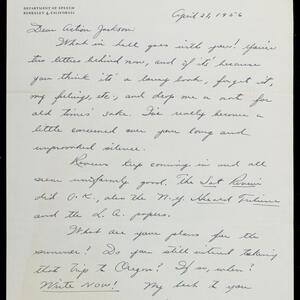 DEPARTMENT OF SPEECH
BERKELEY 4, CALIFORNIA
April 21, 1956
Dear Action Jackson:
What in hell goes with you! You're
two letters behind now, and if it's because
you think it's a lousy book, forget it,
my feelings, etc., and drop me a note for
old times' sake. I've really become a
little concerned over your long and
unprovoked silence.
Reviews keep coming in and all
seem uniformly good. The Sat Review
did O.K., also the N.Y. Herald Tribune
and the L.A. papers.
What are your plans for the
summer? Do you still intend taking
that trip to Oregon? If so, when?
Write NOW! My best to you